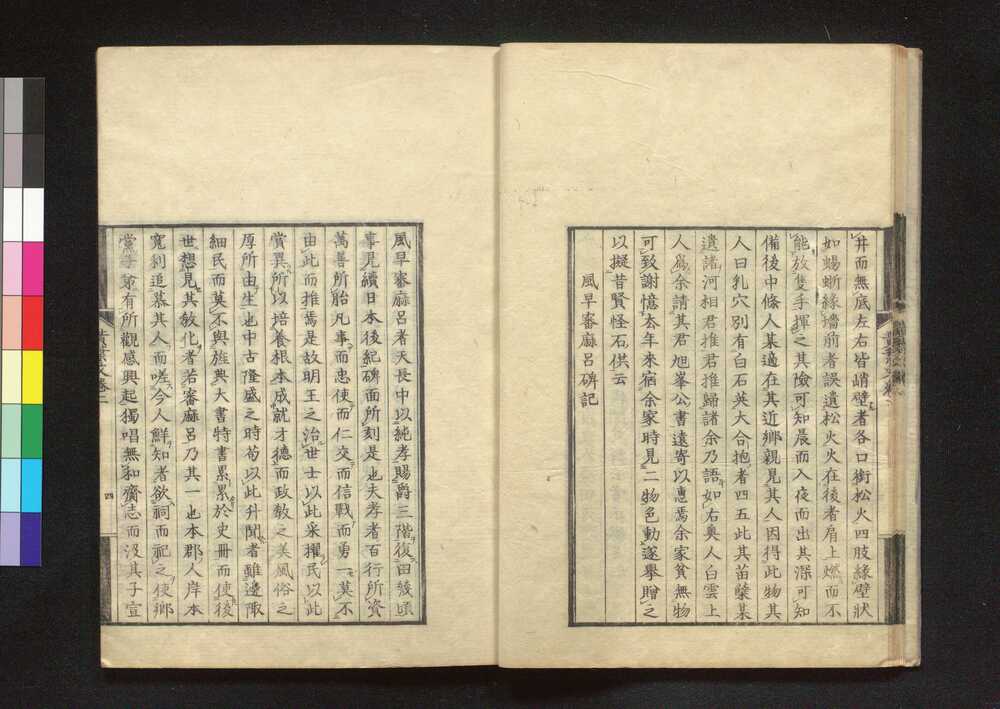 井而無底左右皆峭壁者各口銜松火四肢緣壁狀
如蜴蜥緣墻前者誤遺松火火在後者肩上燃而不
能放隻手揮之其險可知晨而入夜而出其深可知
備後中條人某適在其近鄉親見其人因得此物其
人曰乳穴別有白石英大合抱者四五此其苗蘖某
遺諸河相君推君推歸諸余乃語如右奧人白雲上
人為余請其君旭峯公書遠寄以惠焉余家貧無物
可致謝憶去年來宿余家時見二物色動遂擧贈之
以擬昔賢怪石供云
風早審麻呂碑記
風早審麻呂者天長中以純孝賜爵三階復田終
事見續日本後紀碑面所刻是也夫孝者百行所資
萬善所胎凡事而忠使而仁交而信戰而勇一莫不
由此而推焉是故明王之治世士以此采擢民以此
賞異所以培養根本成就才德而政敎之美風俗之
厚所由生也中古隆盛之時苟以此升聞者雖邊陬
細民而莫不與旌典大書特書累累於史冊而使後
世想見其敎化者若審麻呂乃其一也本郡人岸本
寬利追慕其人而嗟今人鮮知者欲祠而祀之使鄉
有所觀感興起獨唱無和齎志而沒其子宣
四